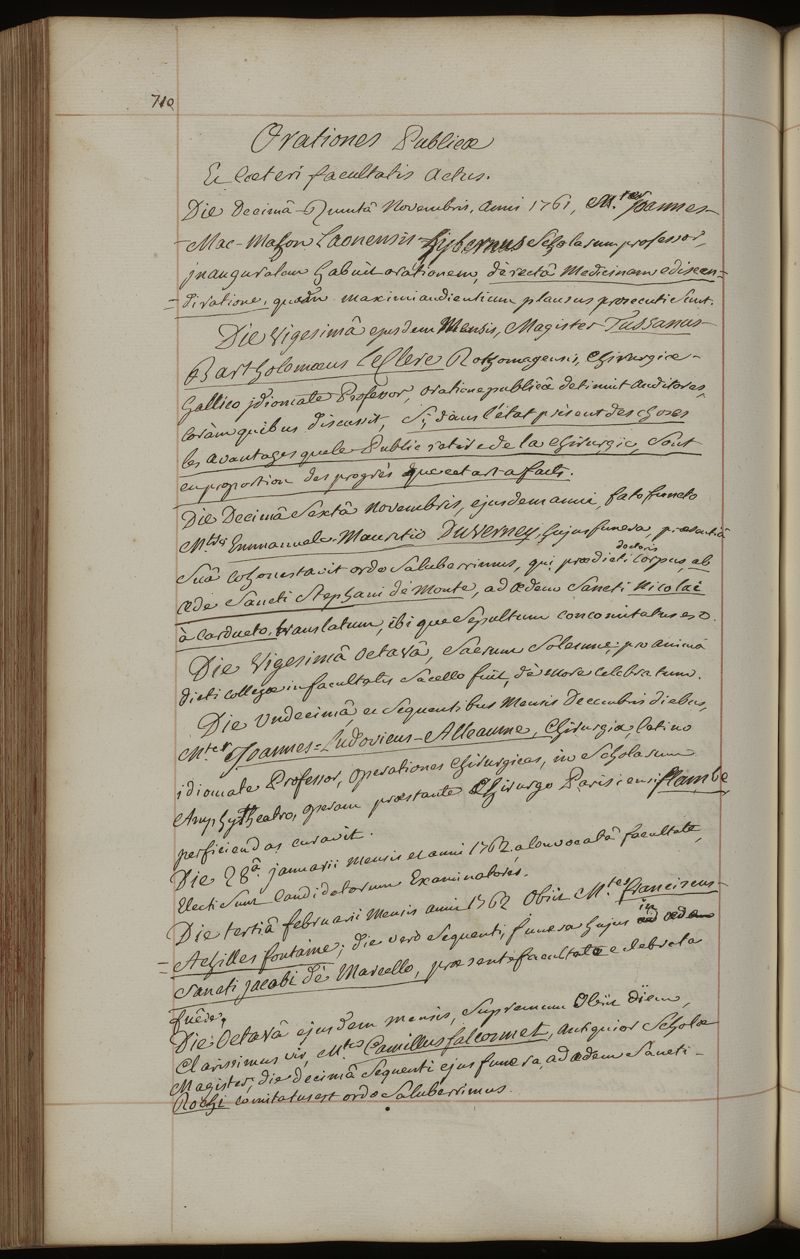 710
Orationes Publicæ
Et Cœteri facultatis Actus.
Die Decimâ-Quintâ Novembris, Anni 1761, M.ter Joannes-
-Mac-Mahon Laonensis-hybernus Scholarum professor,
jnauguralem habuit orationem, dè rectâ Medicinam ediscen=
=di ratione, quam maximi audientium plausus prosecuti sunt.
Die Vigesimâ ejusdem Mensis, Magister Tussanus-
Bartholomœus leClerc Rothomagensis, Chirurgiœ-
Gallico jdiomate Professor, oratione publicâ detinuit auditores,
Coràm quibus discussit, Si, dans l'état présent des choses
les avantages que le Public retire de la Chirurgie, sont
en proportion des progrès que cet art a faits.
Die Decimâ Sextâ Novembris, ejusdem anni, fato functo
M.tro Emmanuele-Mauritio Duverney, hujus funera, prœsentiâ
Suâ Cohonestavit ordo Saluberrimus, qui prœdicti doctoris Corpus, ab
œde Sancti Stephani dè Monte, ad œdem Sancti Nicolai
à Cardueto, translatum, ibi que Sepultum concomitatus est.
Die Vigesimâ Octavâ, Sacrum Solemne, pro animâ
dicti collegœ in facultatis Sacello fuit, dè more celebratum.
Die Undecimâ, et Sequentibus Mensis Decembris diebus,
M.ter Joannes=Ludovicus-Alleaume, Chirurgiœ latino
idiomate Professor, Operationes Chirurgicas, in Scholarum
Amphytheatro, operam prœstante Chirurgo Parisiensi flambe,
perficiendas curavit.
Die 28â. januarii Mensis et anni 1762. a Convocatâ facultate,
Electi Sunt Candidatorum Examinatores.
Die tertiâ februarii Mensis anni 1762 Obiit M.ter franciscus-
-Achilles fontaine; die verò Sequenti, funera hujus in œde
Sancti jacobi dè Marcello, prœsente facultate celebrata
fuêre.
Die Octavâ ejusdem mensis, Supremum Obiit diem,
Clarissimus vir, M.ter Camillus falconnet, Antiquior Scholœ
Magister; die decimâ Sequenti ejus funera, ad œdem Sancti-
Rochi comitatus est ordo Saluberrimus.